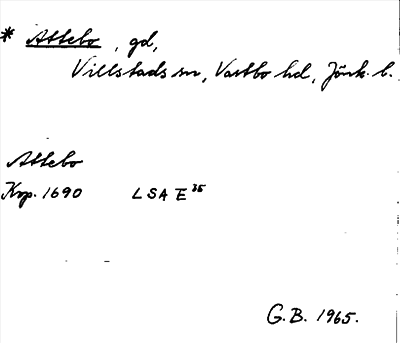 * Attebo, gd,
Villstads sn, Vastbo hd, Jönk. l.
Attebo
Krp. 1690 LSA E 35
G.B. 1965.